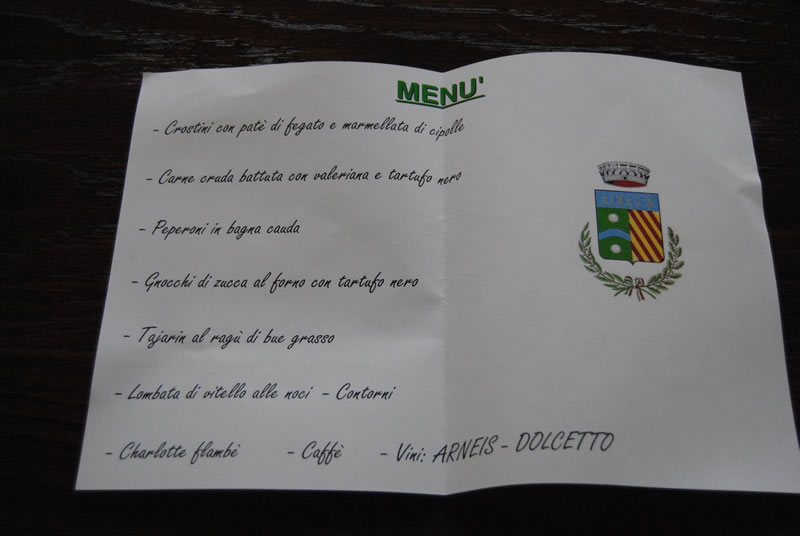 MENU'
- Crostini con patè di fegato e marmellata di cipolle
- Carne cruda battuta con valeriana e tartufo nero
- Peperoni in bagna cauda
- Gnocchi di zucca al forno con tartufo nero
- Tajarin al ragù di bue grasso
- Lombata di vitello alle noci - Contorni
- Charlotte flambè - Caffè - Vini: ARNEIS - DOLCETTO